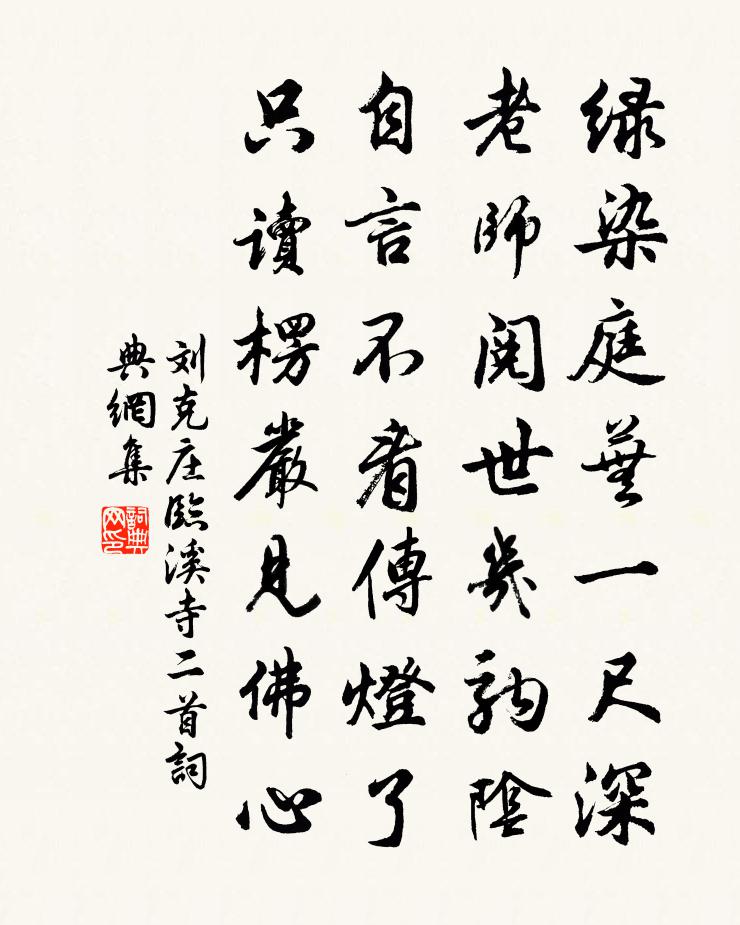 緑染庭蕪一尺深
老師閱世幾駒陰
自言不看傳燈了
只讀楞嚴見佛心
刘克庄臨溪寺二首詞
典網集
詞典
网印